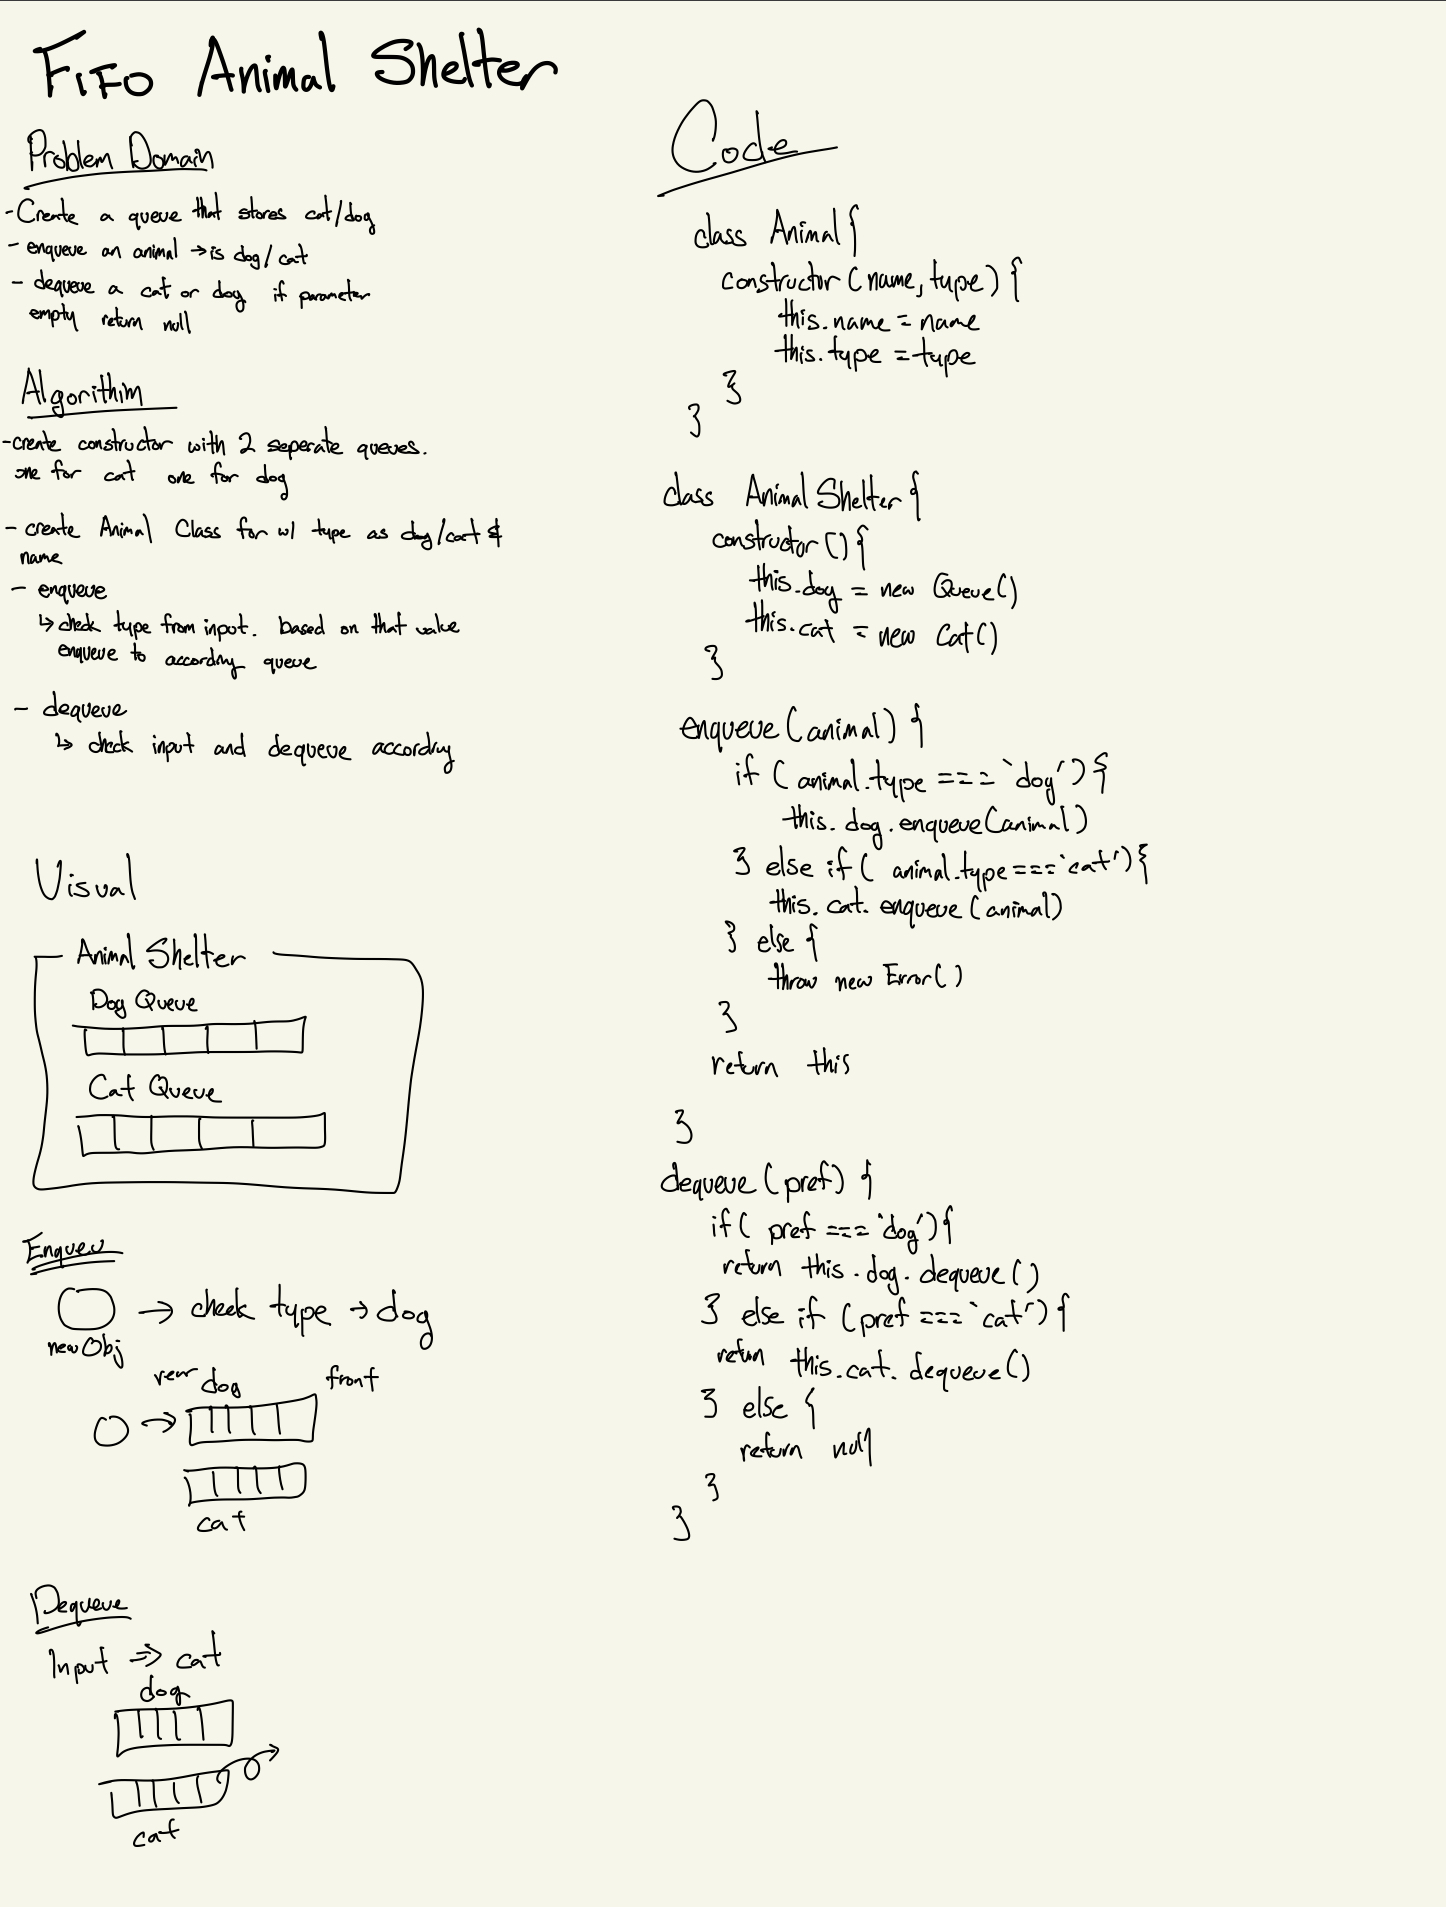 FiFo Animal Shelter
Problem Domain
- Create a queue that stores cat/dog
- enqueue an animal → is dog/cat
- dequeue a cat or dog if parameter
empty return null
Algorithim
- create constructor with 2 seperate queues.
one for cat one for dog
- create Animal Class for w/ type as dog/cat &
name
- enqueue
↳ check type from input. based on that value
enqueue to accordny queue
- dequeue
↳ check input and dequeue accordny
Visual
Animal Shelter
Dog Queue
Cat Queue
Enqueu
→ check type → dog
new Obj
rear dog front
→
cat
Dequeue
Input ⇒ cat
dog
cat
Code
class Animal {
constructor (name, type) {
this.name = name
this.type = type
}
}
class Animal Shelter {
constructor () {
this.dog = new Queue()
this.cat = new Cat()
}
enqueue (animal) {
if (animal.type === `dog') {
this.dog.enqueue(animal)
} else if ( animal.type === `cat') {
this.cat.enqueue (animal)
} else {
throw new Error()
}
return this
}
dequeue (pref) {
if ( pref === `dog') {
return this.dog.dequeue()
} else if (pref === `cat') {
return this.cat.dequeue()
} else {
return null
}
}